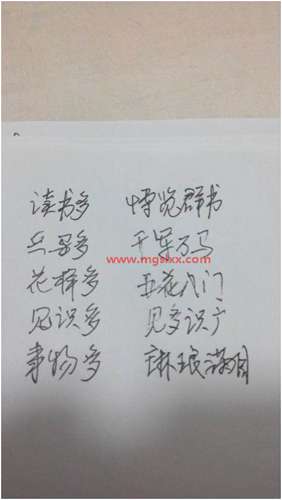 读书多 博览群书
兵马多 千军万马
www.mgslxx.com
花样多 五花八门
见识多 见多识广
事物多 琳琅满目